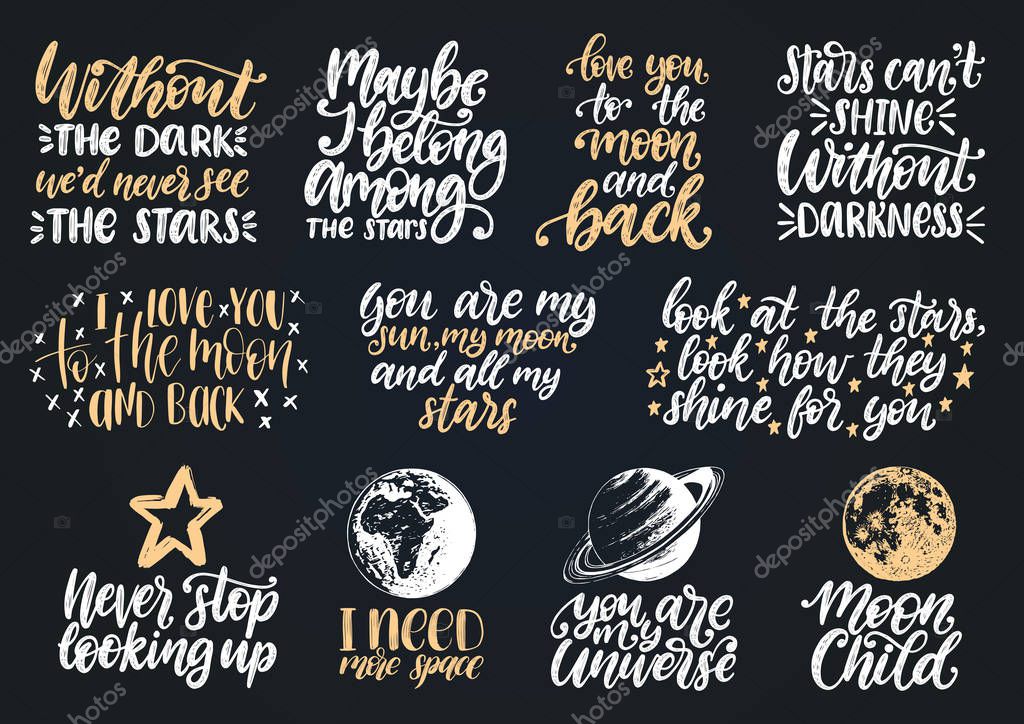 Without
THE DARK
we'd never see
THE STARS
Maybe
I belong
among
THE STARS
love you
to the
moon
and
back
Stars can't
SHINE
Without
DARKNESS
I LOVE YOU
to the moon
AND BACK
you are my
sun, my moon
and all my
stars
look at the stars,
look how they
shine for you
Never stop
looking up
I NEED
more space
you are
my
Universe
Moon
Child
depositphotos
depositphotos
depositphotos
depositphotos
depositphotos
depositphotos
depositphotos
depositphotos
depositphotos
depositphotos
depositphotos
depositphotos